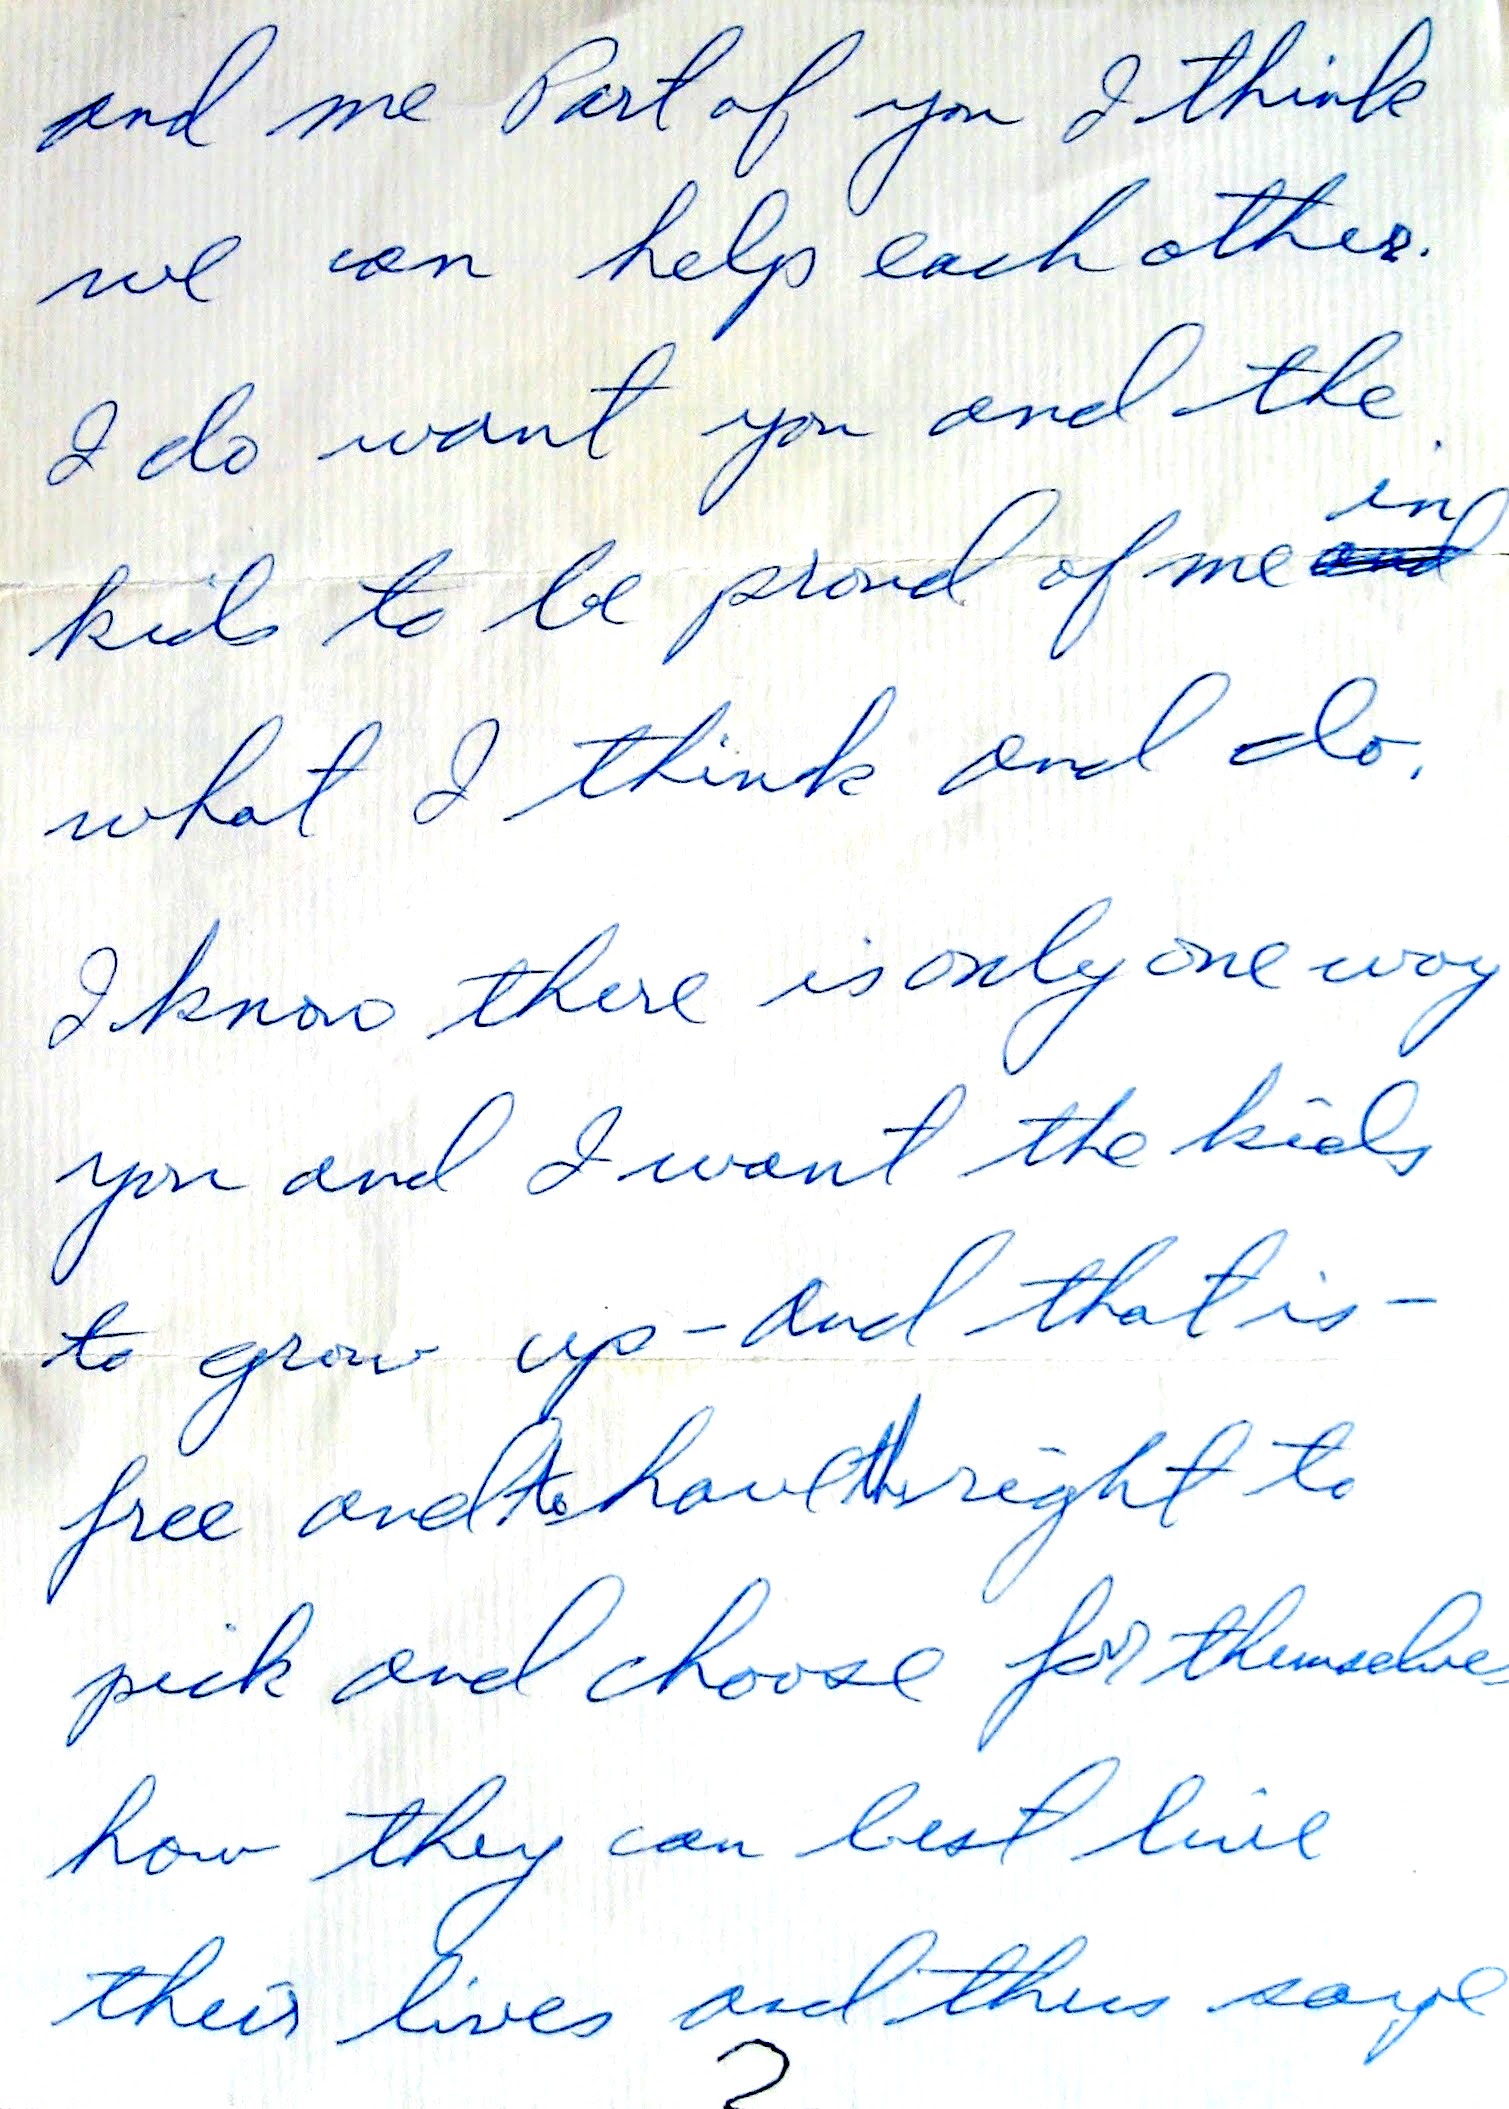 and me Part of you I think
we can help each other.
I do want you and the
kids to be proud of me in
what I think and do.
I know there is only one way
you and I want the kids
to grow up - and that is -
free and to have the right to
pick and choose for themselves
how they can best live
their lives and thus
2